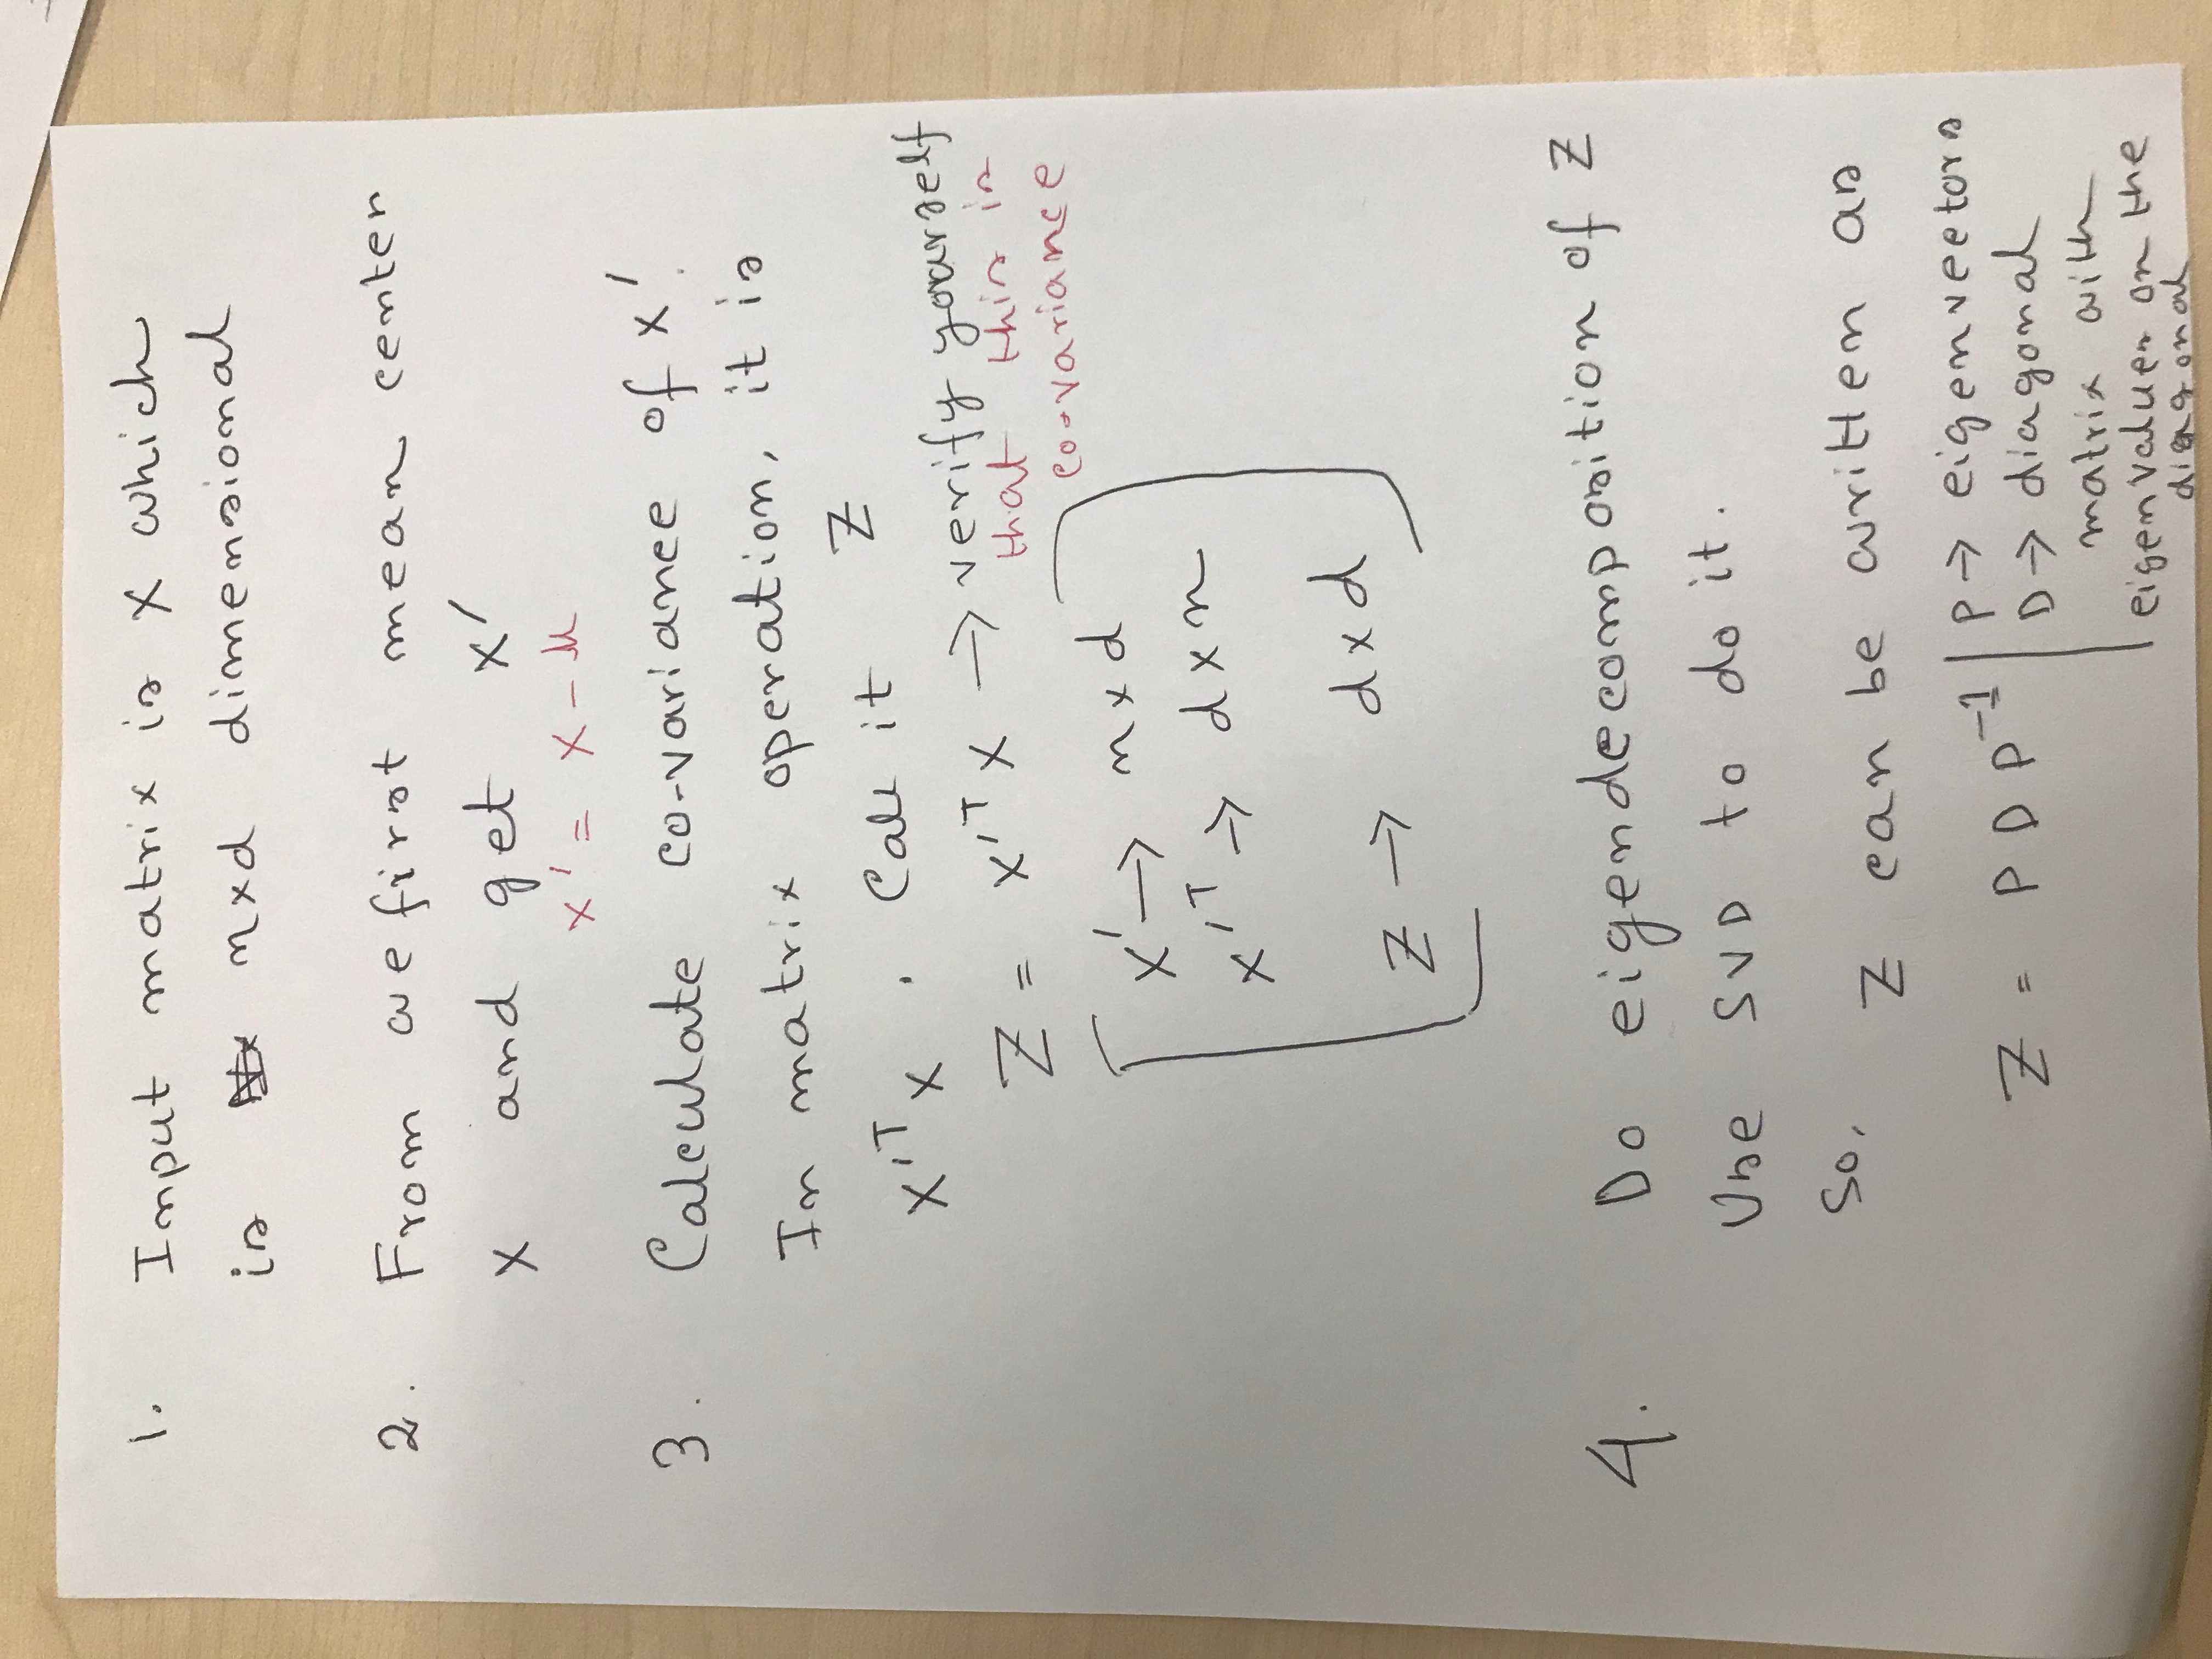 1. Input matrix is X which
is n×d dimensional
2. From we first mean center
X and get X'
X' = X - μ
3. Calculate co-variance of X'.
In matrix operation, it is
X'ᵀX . Call it Z
Z = X'ᵀX → verify yourself
that this is
co-variance
X' → n×d
X'ᵀ → d×n
Z → d×d
4. Do eigendecomposition of Z
Use SVD to do it.
So, Z can be written as
Z = P D P⁻¹
P → eigenvectors
D → diagonal
matrix with
eigenvalues on the
diagonal